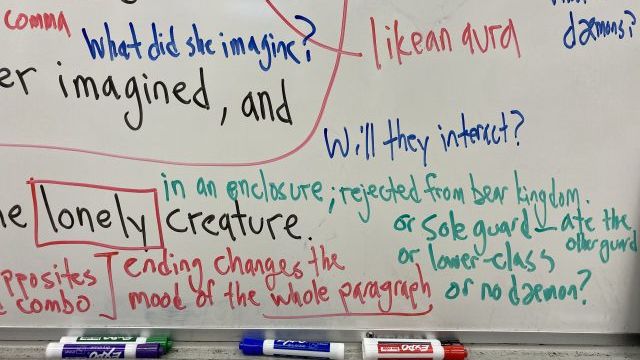 comma
What did she imagine?
like an aura
dæmons?
er imagined, and
Will they interact?
in an enclosure; rejected from bear kingdom.
e lonely creature.
or sole guard - ate the
other guard
or lower-class
or no dæmon?
pposites
combo
ending changes the
mood of the whole paragraph
EXPO
EXPO